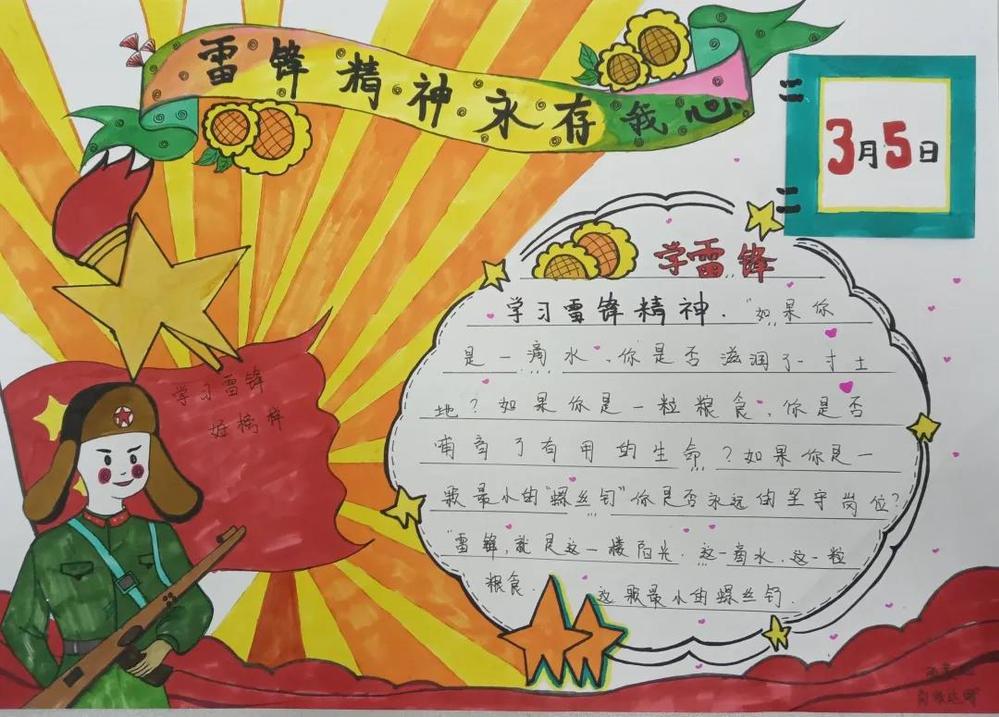 雷锋精神永存我心
3月5日
学雷锋
学习雷锋精神．“如果你
是一滴水、你是否滋润了一寸土
地？如果你是一粒粮食、你是否
哺育了有用的生命？如果你是一
颗最小的“螺丝钉”你是否永远的坚守岗位？
“雷锋，就是这一缕阳光．这一滴水、这一粒
粮食． 这颗最小的螺丝钉．
学习雷锋
好榜样